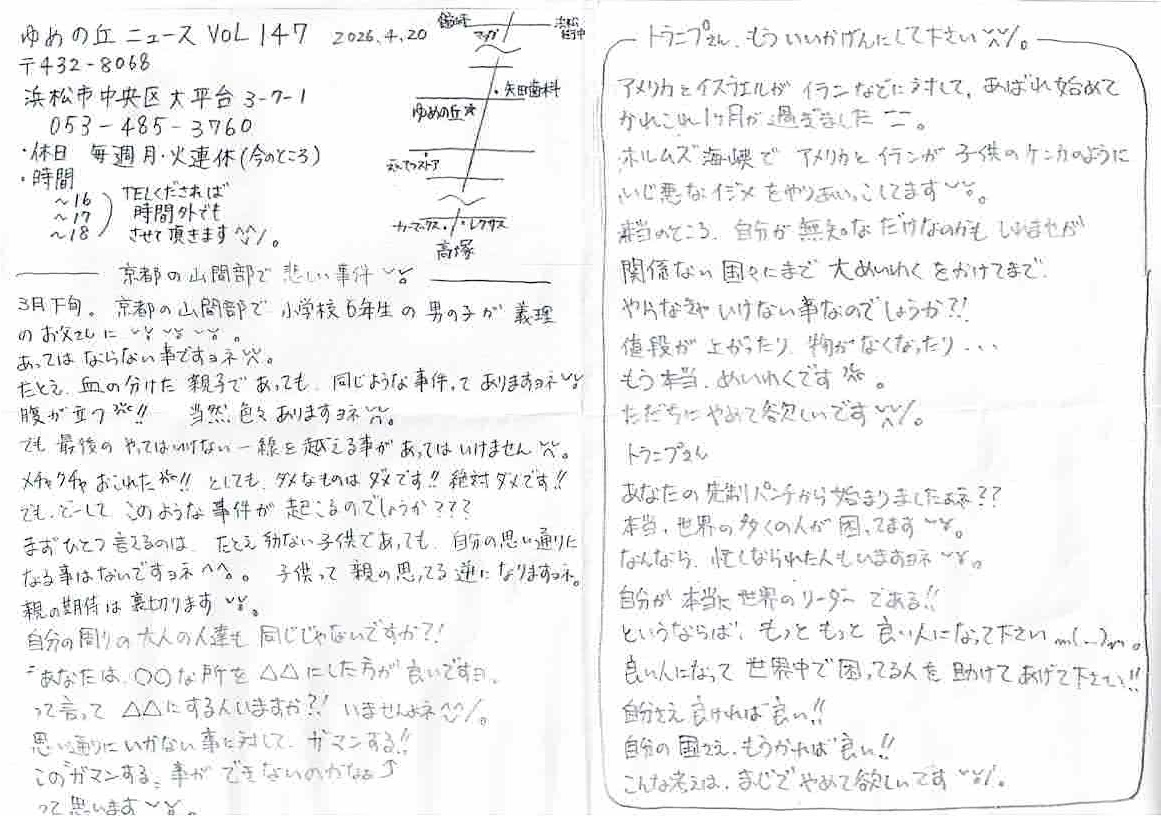 ゆめの丘 ニュース VOL 147 2026.4.20
〒432-8068
浜松市中央区大平台 3-7-1
053-485-3760
・休日 毎週月・火連休(今のところ)
・時間
~16
~17
~18
TELくだされば
時間外でも
させて頂きます^^/。
マック
矢田歯科
ゆめの丘★
カーマックス・
・レクサス
高塚
京都の山間部で 悲しい事件
3月下旬。京都の山間部で 小学校6年生の男の子が 義理
のお父さんに
あってはならない事ですヨネ
たとえ、血の分けた親子であっても、同じような事件ってありますヨネ
腹が立つ!! 当然、色々ありますヨネ
でも最後のやってはいけない一線を越える事があってはいけません
メチャクチャおこれた!! としても、ダメなものはダメです!! 絶対ダメです!!
でも、どーして このような事件が 起こるのでしょうか???
まずひとつ言えるのは、たとえ幼ない子供であっても、自分の思い通りに
なる事はないですヨネ^^。 子供って 親の思ってる逆になりますヨネ。
親の期待は裏切ります
自分の周りの大人の人達も 同じじゃないですか?!
「あなたは、〇〇な所を △△にした方が良いですヨ、
って言って △△にする人いますか?! いませんよネ^^/。
思い通りにいかない事に対して、ガマンする!!
この"ガマンする"事が できないのかなぁ⤴
って思います
トランプさん、もういいかげんにして下さい
アメリカとイスラエルが イランなどに対して、あばれ始めて
かれこれ1ヶ月が過ぎました
ホルムズ海峡で アメリカとイランが 子供のケンカのように
いじ悪なイジメをやりあいっこしてます
本当のところ、自分が無知なだけなのかもしれませんが
関係ない国々にまで 大めいわくをかけてまで、
やらなきゃいけない事なのでしょうか?!
値段が上がったり、物がなくなったり・・・
もう本当、めいわくです
ただちにやめて欲しいです
トランプさん
あなたの先制パンチから始まりましたよネ??
本当、世界の多くの人が困ってます
なんなら、亡くなられた人もいますヨネ
自分が本当に世界のリーダーである!!
というならば、もっともっと良い人になって下さいm(__)m。
良い人になって 世界中で困ってる人を助けてあげて下さい!!
自分さえ良ければ良い!!
自分の国さえ、もうかれば良い!!
こんな考えは、まじでやめて欲しいです